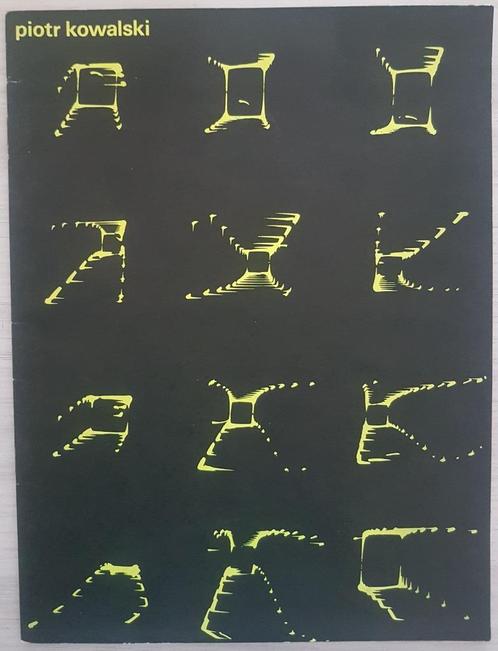 piotr kowalski